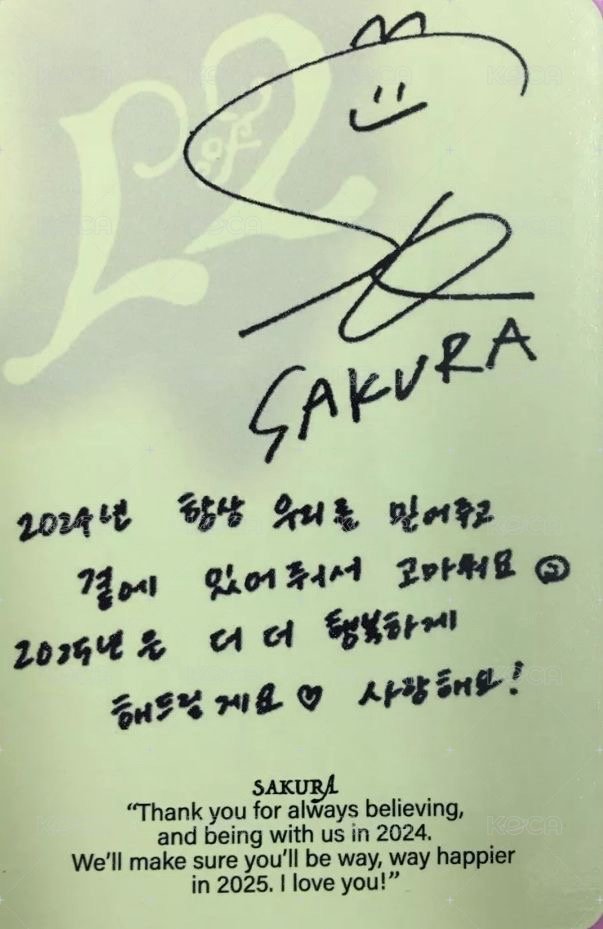 SAKURA
2024년 항상 우리를 믿어주고
곁에 있어줘서 고마워요
2025년은 더 더 행복하게
해드릴게요 ♡ 사랑해요!
SAKURA
“Thank you for always believing,
and being with us in 2024.
We’ll make sure you’ll be way, way happier
in 2025. I love you!”